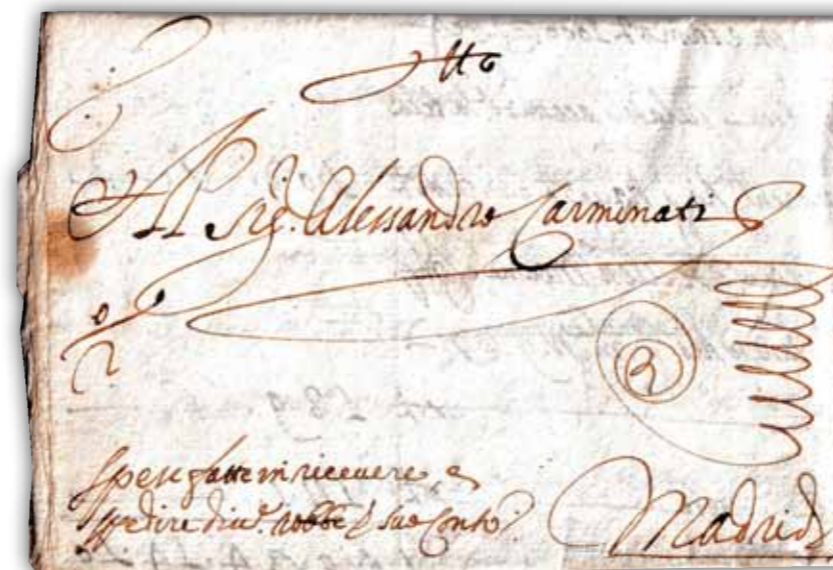 Al Sig. Alessandro Carminati
Spese fatte in riceuere, e
spedire diu.e robbe p suo Conto
Madrid